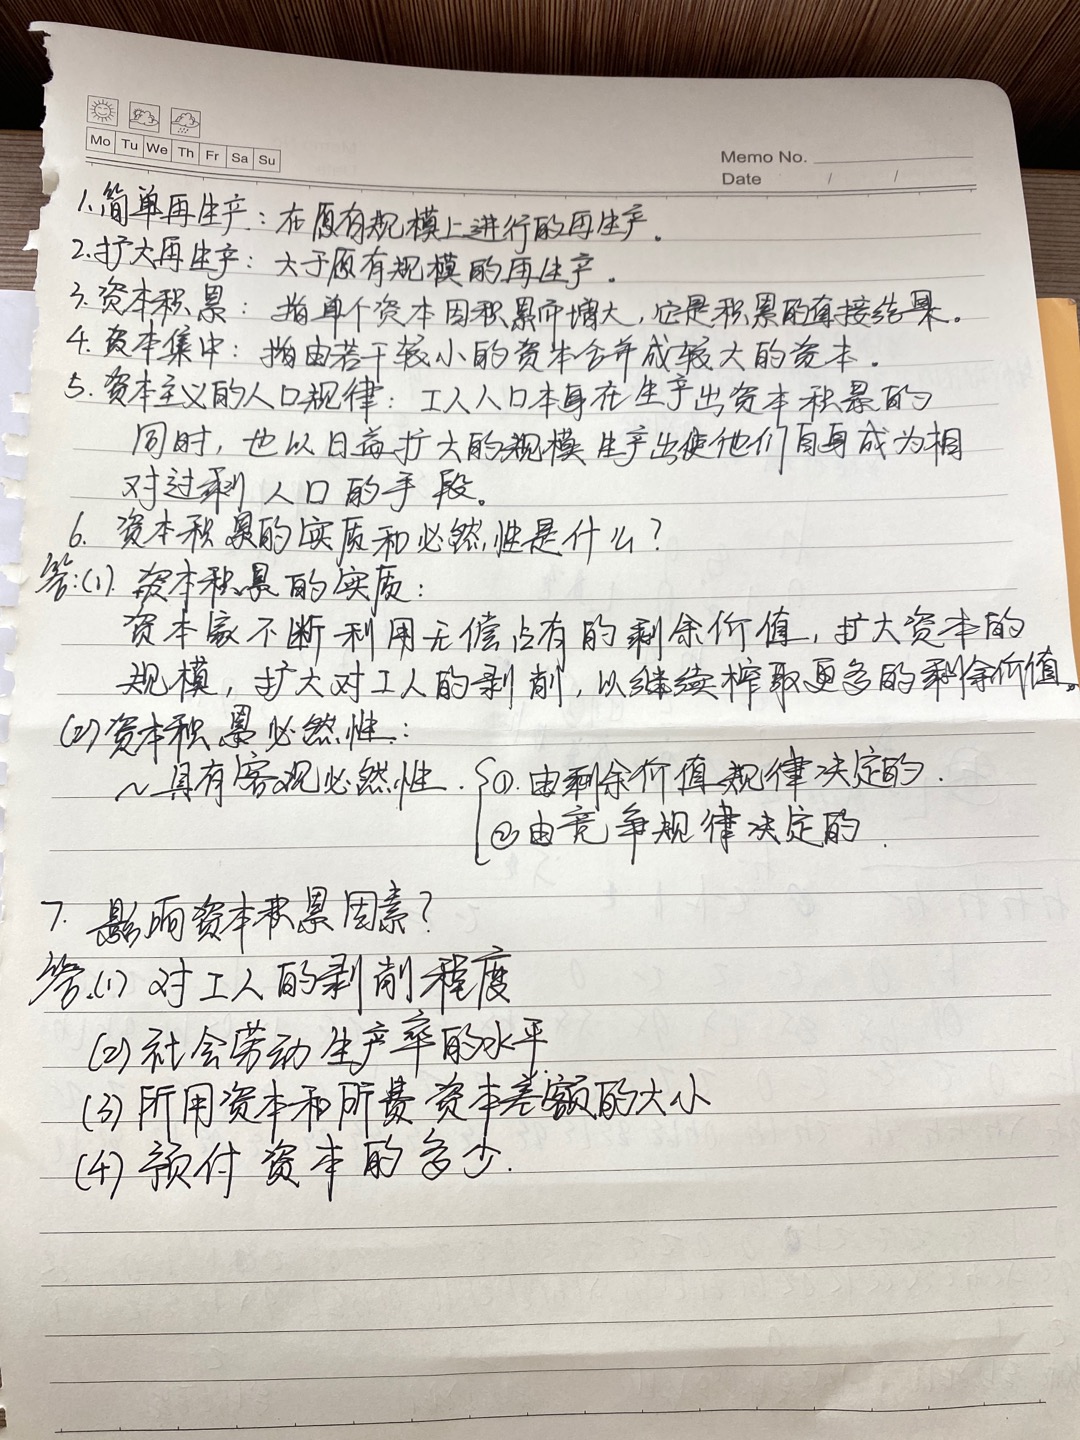 Mo Tu We Th Fr Sa Su
Memo No.
Date / /
1.简单再生产：在原有规模上进行的再生产。
2.扩大再生产：大于原有规模的再生产。
3.资本积累：指单个资本因积累而增大，它是积累的直接结果。
4.资本集中：指由若干较小的资本合并成较大的资本。
5.资本主义的人口规律：工人人口本身在生产出资本积累的
同时，也以日益扩大的规模生产出使他们自身成为相
对过剩人口的手段。
6.资本积累的实质和必然性是什么？
答:(1).资本积累的实质：
资本家不断利用无偿占有的剩余价值，扩大资本的
规模，扩大对工人的剥削，以继续榨取更多的剩余价值。
(2)资本积累必然性：
～具有客观必然性. ①.由剩余价值规律决定的.
②由竞争规律决定的.
7.影响资本积累因素？
答.(1)对工人的剥削程度
(2)社会劳动生产率的水平
(3)所用资本和所费资本差额的大小
(4)预付资本的多少.